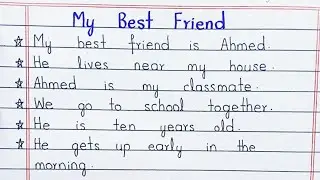 My Best Friend
☆ My best friend is Ahmed.
☆ He lives near my house.
☆ Ahmed is my classmate.
☆ We go to school together.
☆ He is ten years old.
☆ He gets up early in the
morning.